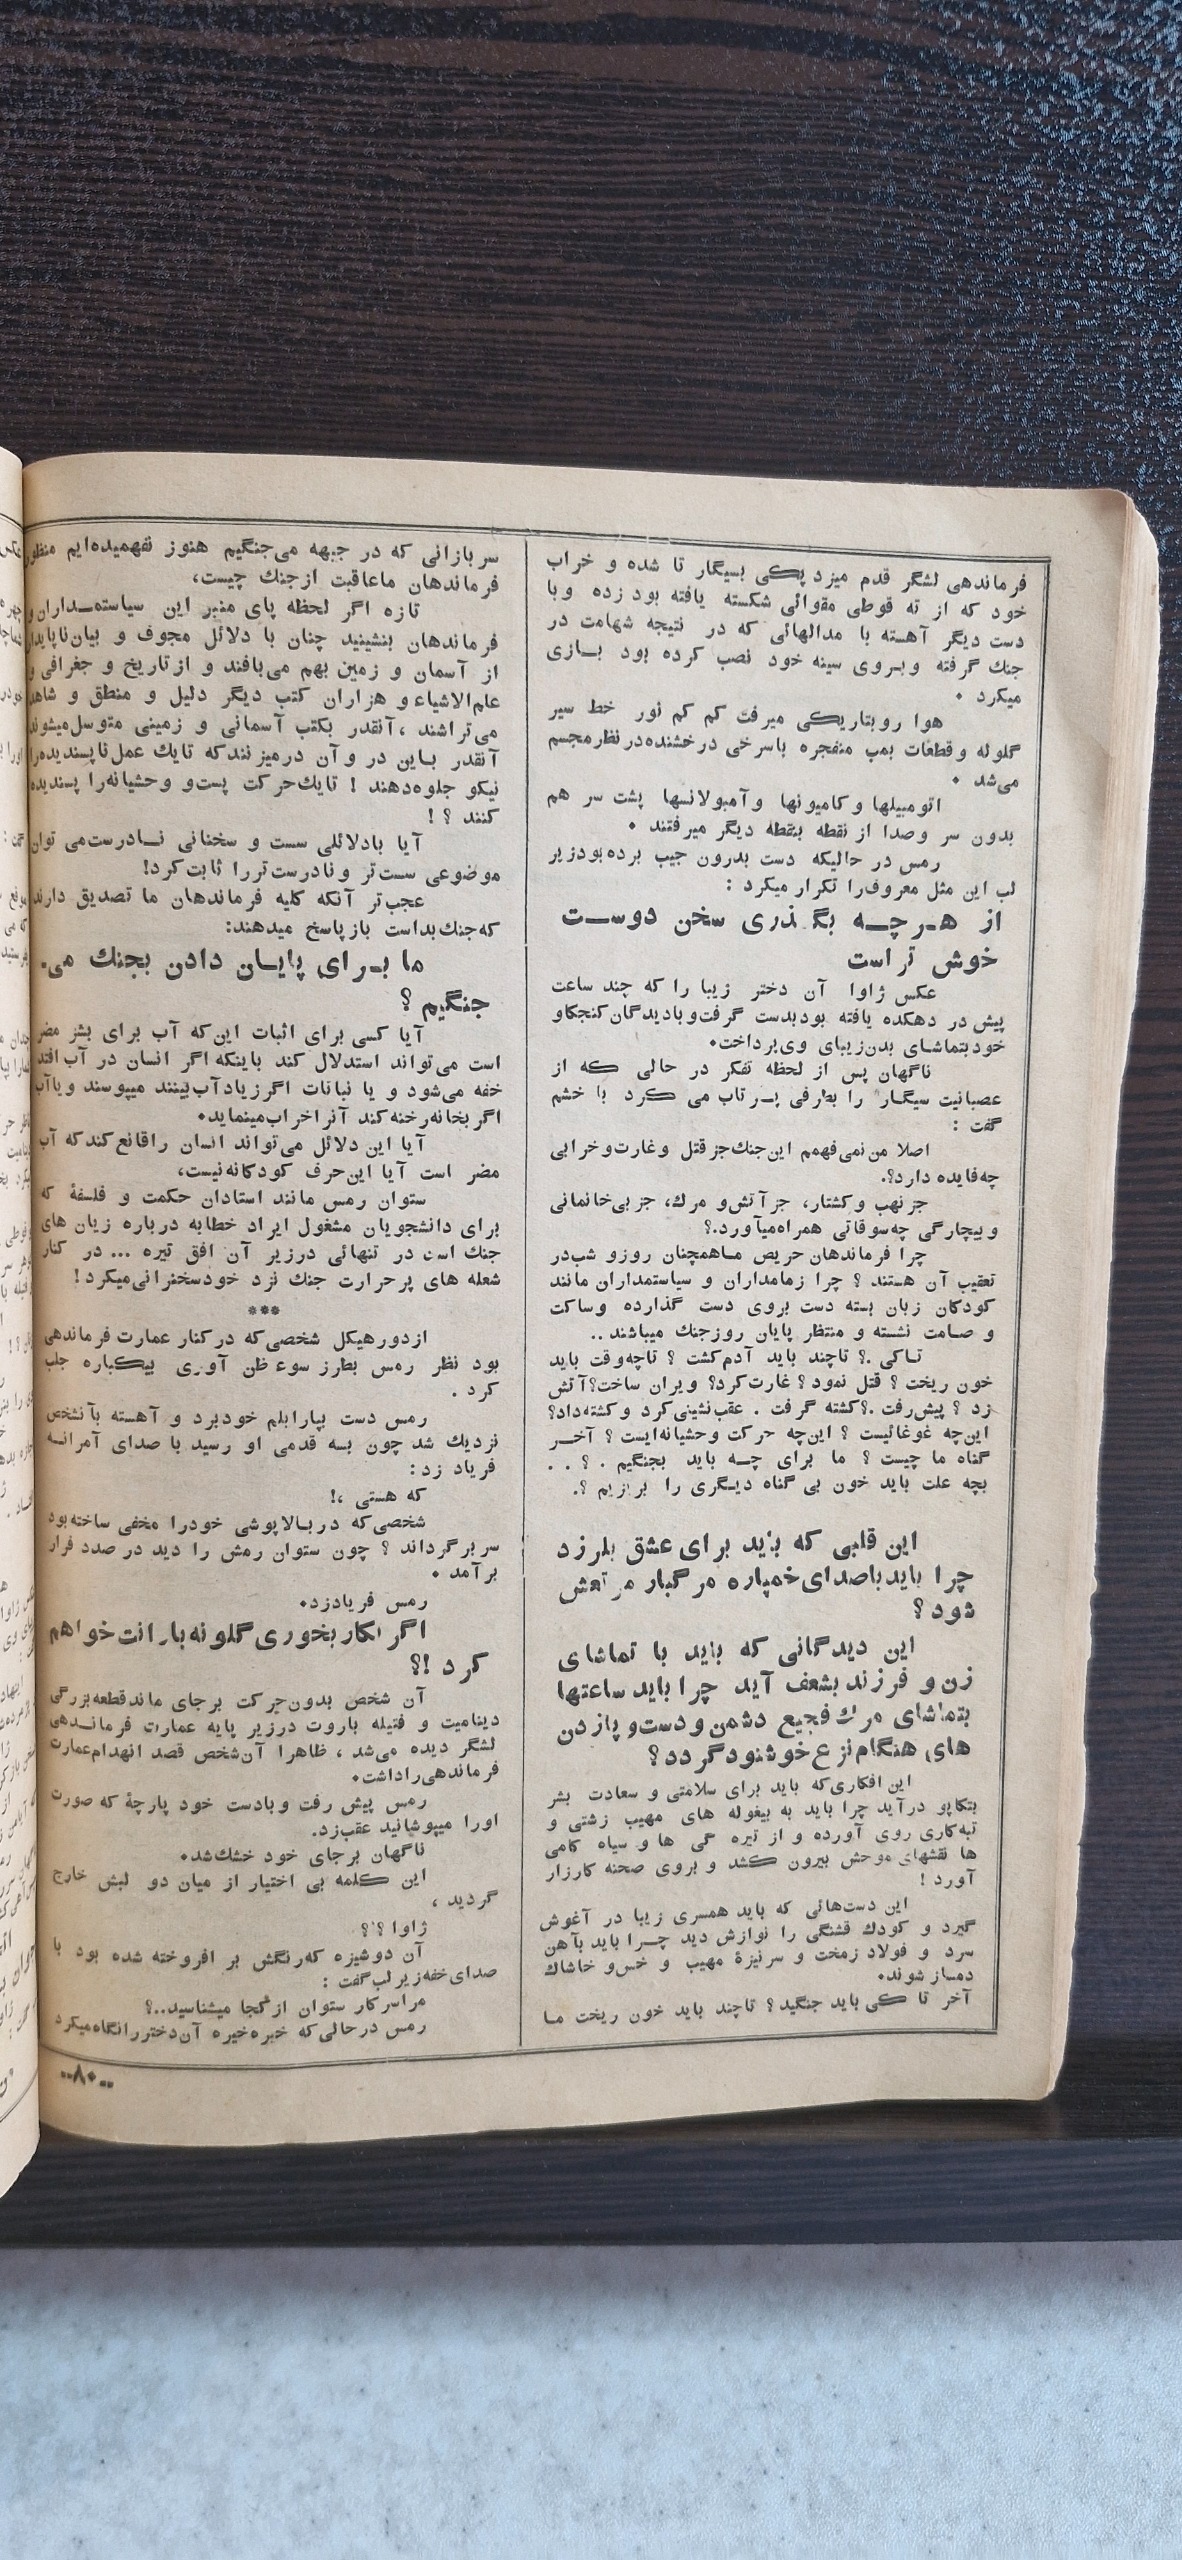 فرماندهی لشگر قدم میزد پکی بسیگار تا شده و خراب
خود که از ته قوطی مقوائی شکسته یافته بود زده و با
دست دیگر آهسته با مدالهائی که در نتیجه شهامت در
جنك گرفته و بروی سینه خود نصب کرده بود بازی
میکرد .
هوا رو بتاریکی میرفت کم کم نور خط سیر
گلوله و قطعات بمب منفجره با سرخی درخشنده در نظر مجسم
می‌شد .
اتومبیلها و کامیونها و آمبولانسها پشت سر هم
بدون سر و صدا از نقطه بنقطه دیگر میرفتند .
رمس در حالیکه دست بدرون جیب برده بود زیر
لب این مثل معروف را تکرار میکرد :
از هرچه بگذری سخن دوست
خوش تر است
عکس ژاوا آن دختر زیبا را که چند ساعت
پیش در دهکده یافته بود بدست گرفت و با دیدگان کنجکاو
خود بتماشای بدن زیبای وی پرداخت.
ناگهان پس از لحظه تفکر در حالی که از
عصبانیت سیگار را بطرفی پرتاب می کرد با خشم
گفت :
اصلا من نمی‌فهمم این جنك جز قتل و غارت و خرابی
چه فایده دارد؟.
جز نهب و کشتار، جز آتش و مرك، جز بی‌خانمانی
و بیچارگی چه سوقاتی همراه میآورد.؟
چرا فرماندهان حریص ما همچنان روز و شب در
تعقیب آن هستند ؟ چرا زمامداران و سیاستمداران مانند
کودکان زبان بسته دست بروی دست گذارده و ساکت
و صامت نشسته و منتظر پایان روز جنك میباشند ..
تا کی .؟ تا چند باید آدم کشت ؟ تا چه وقت باید
خون ریخت ؟ قتل نمود ؟ غارت کرد؟ ویران ساخت؟ آتش
زد ؟ پیش رفت .؟ کشته گرفت . عقب نشینی کرد و کشته داد؟
این چه غوغائیست ؟ این چه حرکت وحشیانه‌ایست ؟ آخر
گناه ما چیست ؟ ما برای چه باید بجنگیم . ؟ . .
بچه علت باید خون بی گناه دیگری را بریزیم ؟.
این قلبی که باید برای عشق بلرزد
چرا باید با صدای خمپاره مرگبار مرتعش
شود ؟
این دیدگانی که باید با تماشای
زن و فرزند بشعف آید چرا باید ساعتها
بتماشای مرك فجیع دشمن و دست و پا زدن
های هنگام نزع خوشنود گردد ؟
این افکاری که باید برای سلامتی و سعادت بشر
بتکاپو درآید چرا باید به بیغوله های مهیب زشتی و
تبه‌کاری روی آورده و از تیره گی ها و سیاه کامی
ها نقشهای موحش بیرون کشد و بروی صحنه کارزار
آورد !
این دست‌هائی که باید همسری زیبا در آغوش
گیرد و کودك قشنگی را نوازش دید چرا باید بآهن
سرد و فولاد زمخت و سرنیزهٔ مهیب و خس و خاشاك
دمساز شوند.
آخر تا کی باید جنگید ؟ تا چند باید خون ریخت ما
سربازانی که در جبهه می‌جنگیم هنوز نفهمیده‌ایم منظور
فرماندهان ما عاقبت از جنك چیست،
تازه اگر لحظه پای منبر این سیاستمداران و
فرماندهان بنشینید چنان با دلائل مجوف و بیان ناپایدار
از آسمان و زمین بهم می‌بافند و از تاریخ و جغرافی و
علم‌الاشیاء و هزاران کتب دیگر دلیل و منطق و شاهد
می‌تراشند ، آنقدر بکتب آسمانی و زمینی متوسل میشوند
آنقدر باین در و آن در میزنند که تا یك عمل ناپسندیده را
نیکو جلوه دهند ! تا یك حرکت پست و وحشیانه را پسندیده
کنند ؟ !
آیا با دلائلی سست و سخنانی نادرست می توان گفت :
موضوعی سست‌تر و نادرست‌تر را ثابت کرد!
عجب‌تر آنکه کلیه فرماندهان ما تصدیق دارند
که جنك بد است باز پاسخ میدهند:
ما برای پایان دادن بجنك می-
جنگیم ؟
آیا کسی برای اثبات این که آب برای بشر مضر
است می‌تواند استدلال کند باینکه اگر انسان در آب افتد
خفه می‌شود و یا نباتات اگر زیاد آب ببینند میپوسند و یا آب
اگر بخانه رخنه کند آنرا خراب مینماید.
آیا این دلائل می‌تواند انسان را قانع کند که آب
مضر است آیا این حرف کودکانه نیست،
ستوان رمس مانند استادان حکمت و فلسفهٔ که
برای دانشجویان مشغول ایراد خطابه درباره زیان های
جنك است در تنهائی در زیر آن افق تیره ... در کنار
شعله های پر حرارت جنك نزد خود سخنرانی میکرد !
***
از دور هیکل شخصی که در کنار عمارت فرماندهی
بود نظر رمس بطرز سوء ظن آوری بیکباره جلب
کرد .
رمس دست بپارابلم خود برد و آهسته بآنشخص
نزدیك شد چون بسه قدمی او رسید با صدای آمرانه
فریاد زد :
که هستی ،!
شخصی که در بالاپوشی خود را مخفی ساخته بود
سر برگرداند ؟ چون ستوان رمش را دید در صدد فرار
برآمد .
رمس فریاد زد.
اگر تکان بخوری گلوله بارانت خواهم
کرد !؟
آن شخص بدون حرکت بر جای ماند قطعه بزرگی
دینامیت و فتیله باروت در زیر پایه عمارت فرماندهی
لشگر دیده می‌شد ، ظاهرا آن شخص قصد انهدام عمارت
فرماندهی را داشت.
رمس پیش رفت و با دست خود پارچهٔ که صورت
اورا میپوشانید عقب زد.
ناگهان بر جای خود خشك شد.
این کلمه بی اختیار از میان دو لبش خارج
گردید ،
ژاوا ؟ ؟
آن دوشیزه که رنگش بر افروخته شده بود با
صدای خفه زیر لب گفت :
مرا سرکار ستوان از کجا میشناسید..؟
رمس در حالی که خیره خیره آن دختر را نگاه میکرد
--۸۰--